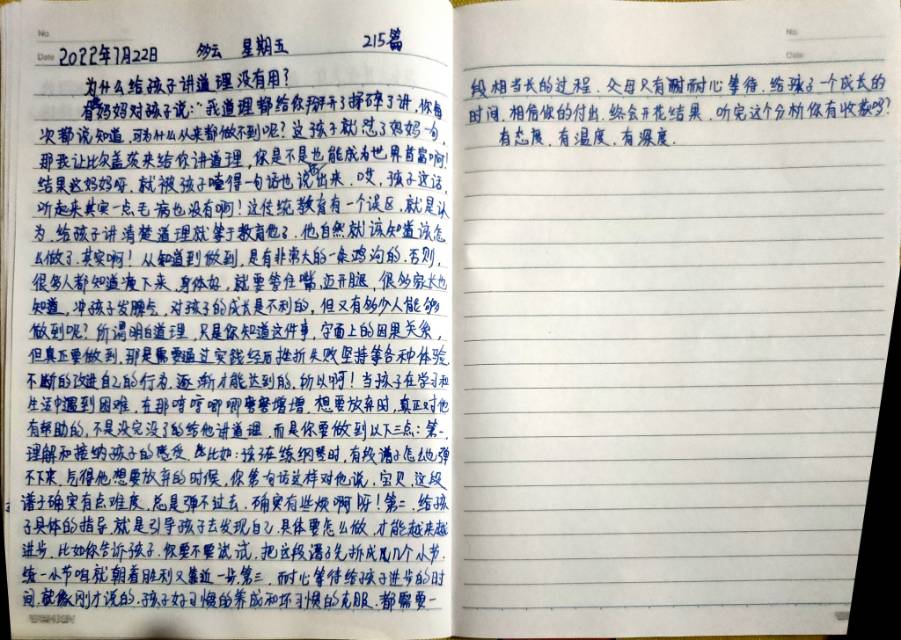 No.
Date 2022年7月22日 多云 星期五 215篇
为什么给孩子讲道理没有用?
有妈妈对孩子说:"我道理都给你掰开了掰碎了讲,你每
次都说知道,可为什么从来都做不到呢?这孩子就怼了妈妈一句,
那我让比尔盖茨来给你讲道理,你是不是也能成为世界首富啊!
结果这妈妈呀,就被孩子噎得一句话也说不出来.哎,孩子这话,
听起来其实一点毛病也没有啊!这传统教育有一个误区,就是认
为,给孩子讲清楚道理就等于教育他了.他自然就该知道该怎
么做了.其实啊!从知道到做到,是有非常大的一条鸿沟的.否则,
很多人都知道瘦下来,身体好,就要管住嘴,迈开腿,很多家长也
知道,冲孩子发脾气,对孩子的成长是不利的,但又有多少人能够
做到呢?所谓明白道理,只是你知道这件事,字面上的因果关系,
但真正要做到,那是需要通过实践经历挫折失败坚持等各种体验.
不断的改进自己的行为,逐渐才能达到的,所以啊!当孩子在学习和
生活中遇到困难,在那哼哼唧唧磨磨增增,想要放弃时,真正对他
有帮助的,不是没完没了的给他讲道理,而是你要做到以下三点:第一,
理解和接纳孩子的感受,比如:孩子在练钢琴时,有段谱子怎么也弹
不下来,气得他想要放弃的时候,你第一句话这样对他说,宝贝,这段
谱子确实有点难度,总是弹不过去,确实有些烦啊呀!第二,给孩
子具体的指导就是引导孩子去发现自己,具体要怎么做,才能越来越
进步,比如你告诉孩子,你要不要试试,把这段谱子先拆成几个小节,
练一小节咱就朝着胜利又靠近一步.第三,耐心等待给孩子进步的时
间.就像刚才说的.孩子好习惯的养成和坏习惯的克服,都需要一
No.
Date
段相当长的过程.父母只有耐心等待,给孩子一个成长的
时间,相信你的付出,终会开花结果.听完这个分析你有收获吗?
有态度,有温度,有深度.